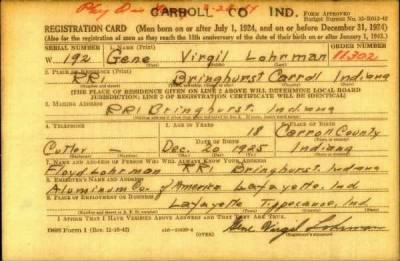 CARROLL CO IND.
FORM APPROVED
REGISTRATION CARD (Men born on or after July 1, 1924, and on or before December 31, 1924)
(Also for the registration of men as they reach the 18th anniversary of the date of their birth on or after January 1, 1943.)
SERIAL NUMBER 1. NAME (Print) ORDER NUMBER
W- 192 Gene Virgil Lohrman 11,302
2. PLACE OF RESIDENCE (Print)
RR1 Bringhurst Carrol Indiana
THE PLACE OF RESIDENCE GIVEN ON LINE 2 ABOVE WILL DETERMINE LOCAL BOARD
JURISDICTION; LINE 2 OF REGISTRATION CERTIFICATE WILL BE IDENTICAL
3. MAILING ADDRESS
RR1 Bringhurst, Indiana
4. TELEPHONE 5. AGE IN YEARS 6. PLACE OF BIRTH
18 Carroll County
DATE OF BIRTH
Cutler — Dec. 20 1925 Indiana
7. NAME AND ADDRESS OF PERSON WHO WILL ALWAYS KNOW YOUR ADDRESS
Floyd Lohrman RR1 Bringhurst, Indiana
8. EMPLOYER'S NAME AND ADDRESS
Aluminum Co. of America Lafayette, Ind
9. PLACE OF EMPLOYMENT OR BUSINESS
Lafayette Tippecanoe, Ind
I AFFIRM THAT I HAVE VERIFIED ABOVE ANSWERS AND THAT THEY ARE TRUE.
DSS Form 1 (Rev. 11-16-42) Gene Virgil Lohrman